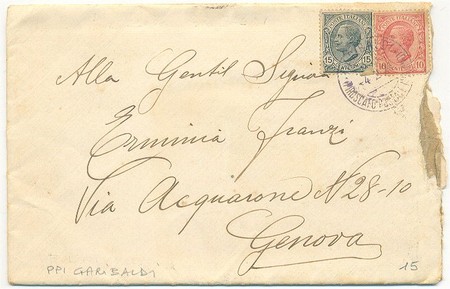 POSTE ITALIANE POSTE ITALIANE
15 15 10 10
Alla Gentil Signora
Erminia Franzi
Via Acquarone N. 28-10
Genova
PPI GARIBALDI 15